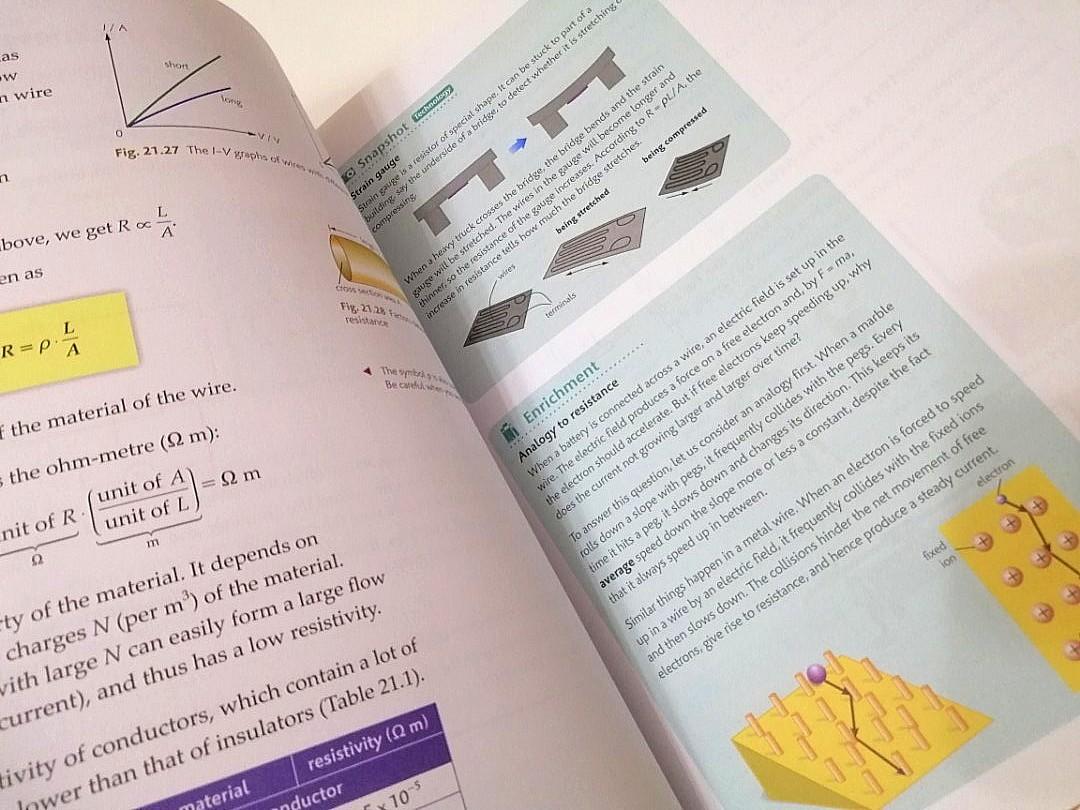 as
ow
n wire
I / A
short
long
0
V / V
Fig. 21.27 The I–V graphs of wires with
n
bove, we get R ∝ L/A.
en as
R = ρ · L/A
cross section area A
Fig. 21.28
resistance
The symbol ρ is
Be careful when
f the material of the wire.
s the ohm-metre (Ω m):
nit of R · (unit of A / unit of L) = Ω m
Ω
m
rty of the material. It depends on
charges N (per m³) of the material.
with large N can easily form a large flow
current), and thus has a low resistivity.
tivity of conductors, which contain a lot of
lower than that of insulators (Table 21.1).
material
resistivity (Ω m)
nductor
× 10⁻⁵
Snapshot Technology
Strain gauge
Strain gauge is a resistor of special shape. It can be stuck to part of a
building, say the underside of a bridge, to detect whether it is stretching
compressing.
When a heavy truck crosses the bridge, the bridge bends and the strain
gauge will be stretched. The wires in the gauge will become longer and
thinner, so the resistance of the gauge increases. According to R = ρL/A, the
increase in resistance tells how much the bridge stretches.
being compressed
being stretched
wires
terminals
Enrichment
Analogy to resistance
When a battery is connected across a wire, an electric field is set up in the
wire. The electric field produces a force on a free electron and, by F = ma,
the electron should accelerate. But if free electrons keep speeding up, why
does the current not growing larger and larger over time?
To answer this question, let us consider an analogy first. When a marble
rolls down a slope with pegs, it frequently collides with the pegs. Every
time it hits a peg, it slows down and changes its direction. This keeps its
average speed down the slope more or less a constant, despite the fact
that it always speed up in between.
Similar things happen in a metal wire. When an electron is forced to speed
up in a wire by an electric field, it frequently collides with the fixed ions
and then slows down. The collisions hinder the net movement of free
electrons, give rise to resistance, and hence produce a steady current.
electron
fixed
ion